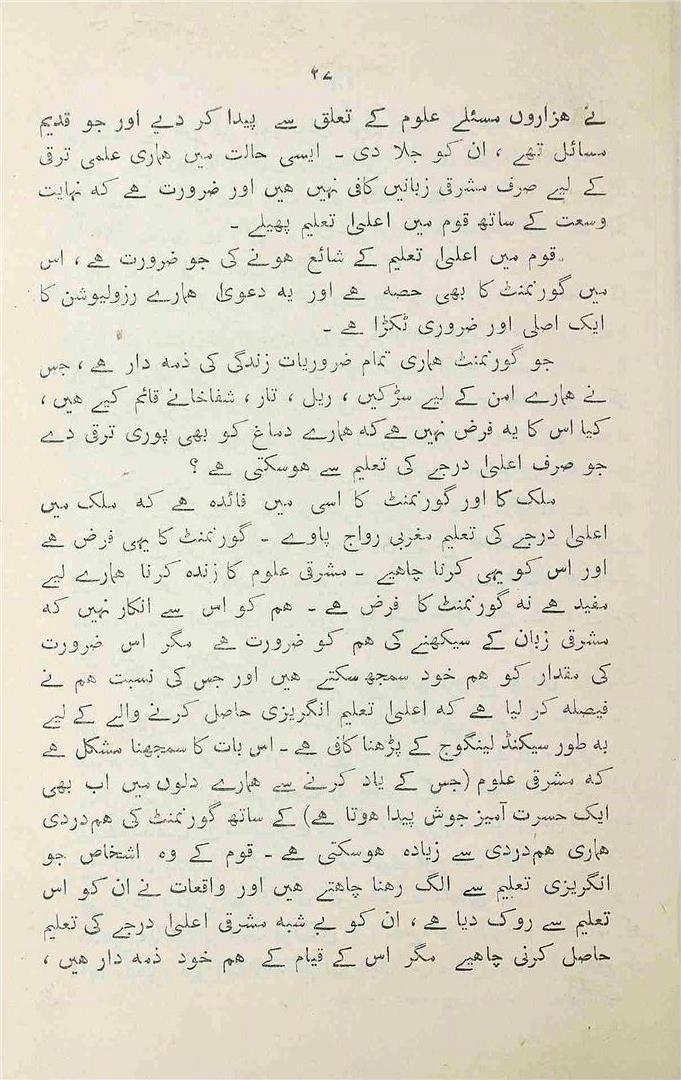 ۲۷
نے ہزاروں مسئلے علوم کے تعلق سے پیدا کر دیے اور جو قدیم
مسائل تھے ، ان کو جلا دی ۔ ایسی حالت میں ہماری علمی ترقی
کے لیے صرف مشرقی زبانیں کافی نہیں ہیں اور ضرورت ہے کہ نہایت
وسعت کے ساتھ قوم میں اعلیٰ تعلیم پھیلے ۔
قوم میں اعلیٰ تعلیم کے شائع ہونے کی جو ضرورت ہے ، اس
میں گورنمنٹ کا بھی حصہ ہے اور یہ دعویٰ ہمارے رزولیوشن کا
ایک اصلی اور ضروری ٹکڑا ہے ۔
جو گورنمنٹ ہماری تمام ضروریات زندگی کی ذمہ دار ہے ، جس
نے ہمارے امن کے لیے سڑکیں ، ریل ، تار ، شفاخانے قائم کیے ہیں ،
کیا اس کا یہ فرض نہیں ہے کہ ہمارے دماغ کو بھی پوری ترقی دے
جو صرف اعلیٰ درجے کی تعلیم سے ہوسکتی ہے ؟
ملک کا اور گورنمنٹ کا اسی میں فائدہ ہے کہ ملک میں
اعلیٰ درجے کی تعلیم مغربی رواج پاوے ۔ گورنمنٹ کا یہی فرض ہے
اور اس کو یہی کرنا چاہیے ۔ مشرقی علوم کا زندہ کرنا ہمارے لیے
مفید ہے نہ گورنمنٹ کا فرض ہے ۔ ہم کو اس سے انکار نہیں کہ
مشرقی زبان کے سیکھنے کی ہم کو ضرورت ہے مگر اس ضرورت
کی مقدار کو ہم خود سمجھ سکتے ہیں اور جس کی نسبت ہم نے
فیصلہ کر لیا ہے کہ اعلیٰ تعلیم انگریزی حاصل کرنے والے کے لیے
بہ طور سیکنڈ لینگوج کے پڑھنا کافی ہے ۔ اس بات کا سمجھنا مشکل ہے
کہ مشرقی علوم (جس کے یاد کرنے سے ہمارے دلوں میں اب بھی
ایک حسرت آمیز جوش پیدا ہوتا ہے) کے ساتھ گورنمنٹ کی ہم دردی
ہماری ہم دردی سے زیادہ ہوسکتی ہے ۔ قوم کے وہ اشخاص جو
انگریزی تعلیم سے الگ رہنا چاہتے ہیں اور واقعات نے ان کو اس
تعلیم سے روک دیا ہے ، ان کو بے شبہ مشرقی اعلیٰ درجے کی تعلیم
حاصل کرنی چاہیے مگر اس کے قیام کے ہم خود ذمہ دار ہیں ،